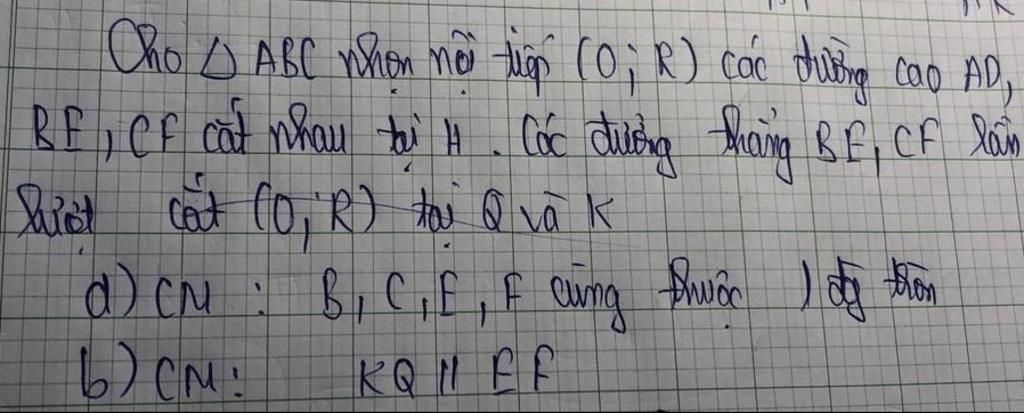 Cho △ ABC nhọn nội tiếp (O; R) các đường cao AD,
BE, CF cắt nhau tại H. Các đường thẳng BE, CF lần
lượt cắt (O; R) tại Q và K
a) CM: B, C, E, F cùng thuộc 1 đg tròn
b) CM: KQ // EF